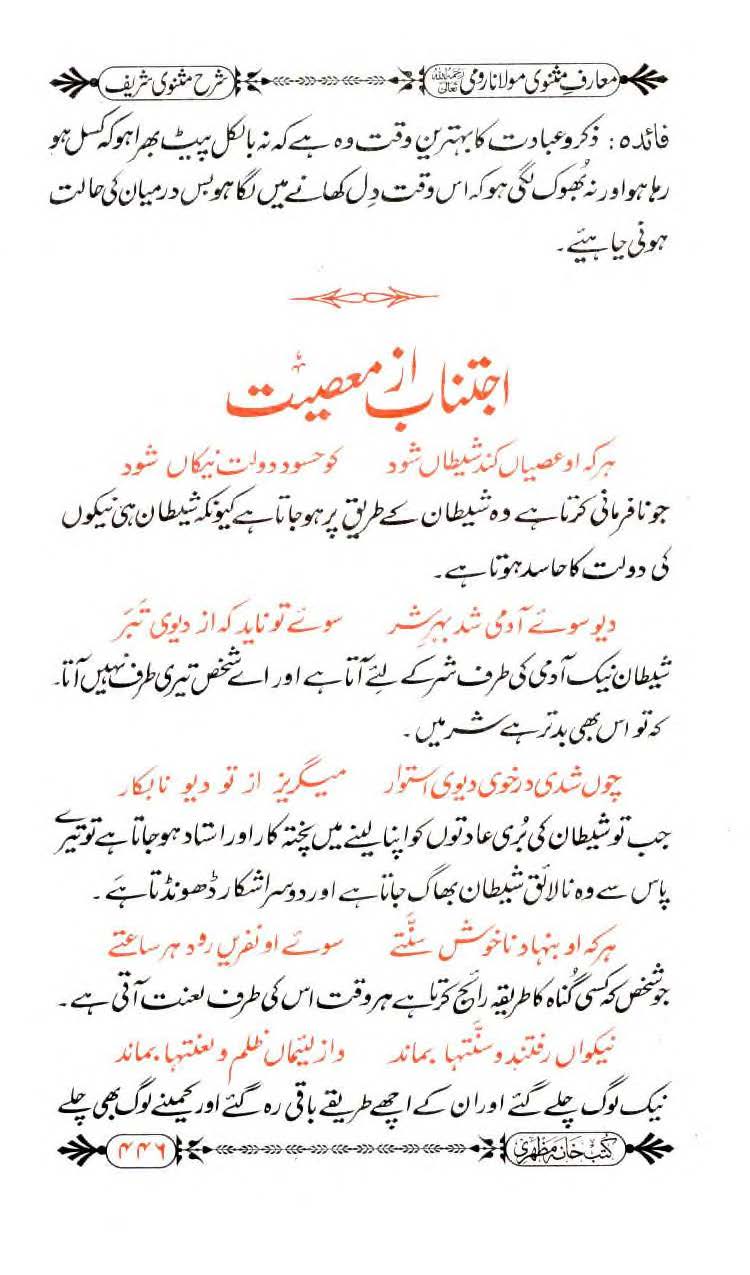 معارفِ مثنوی مولانا رومی رحمۃ اللہ تعالیٰ شرح مثنوی شریف
فائدہ: ذکر و عبادت کا بہترین وقت وہ ہے کہ نہ بالکل پیٹ بھرا ہو کہ کسل ہو
رہا ہو اور نہ بُھوک لگی ہو کہ اس وقت دِل کھانے میں لگا ہو بس درمیان کی حالت
ہونی چاہیئے۔
اجتناب از معصیت
ہر کہ او عصیاں کند شیطاں شود کو حسود دولت نیکاں شود
جو نافرمانی کرتا ہے وہ شیطان کے طریق پر ہو جاتا ہے کیونکہ شیطان ہی نیکوں
کی دولت کا حاسد ہوتا ہے۔
دیو سوئے آدمی شد بہرِ شر سوئے تو ناید کہ از دیوی تبَر
شیطان نیک آدمی کی طرف شر کے لئے آتا ہے اور اے شخص تیری طرف نہیں آتا۔
کہ تو اس بھی بدتر ہے شر میں۔
چوں شدی در خوی دیوی استوار میگریزد از تو دیو نابکار
جب تو شیطان کی بُری عادتوں کو اپنا لینے میں پختہ کار اور استاد ہو جاتا ہے تو تیرے
پاس سے وہ نالائق شیطان بھاگ جاتا ہے اور دوسرا شکار ڈھونڈتا ہے۔
ہر کہ او بنہاد ناخوش سنَّتے سوئے او نفریں رود ہر ساعتے
جو شخص کہ کسی گناہ کا طریقہ رائج کرتا ہے ہر وقت اس کی طرف لعنت آتی ہے۔
نیکواں رفتند و سنَّتہا بماند واز لئیماں ظلم و لعنتہا بماند
نیک لوگ چلے گئے اور ان کے اچھے طریقے باقی رہ گئے اور کمینے لوگ بھی چلے
کتب خانہ مظہری ۴۴۶